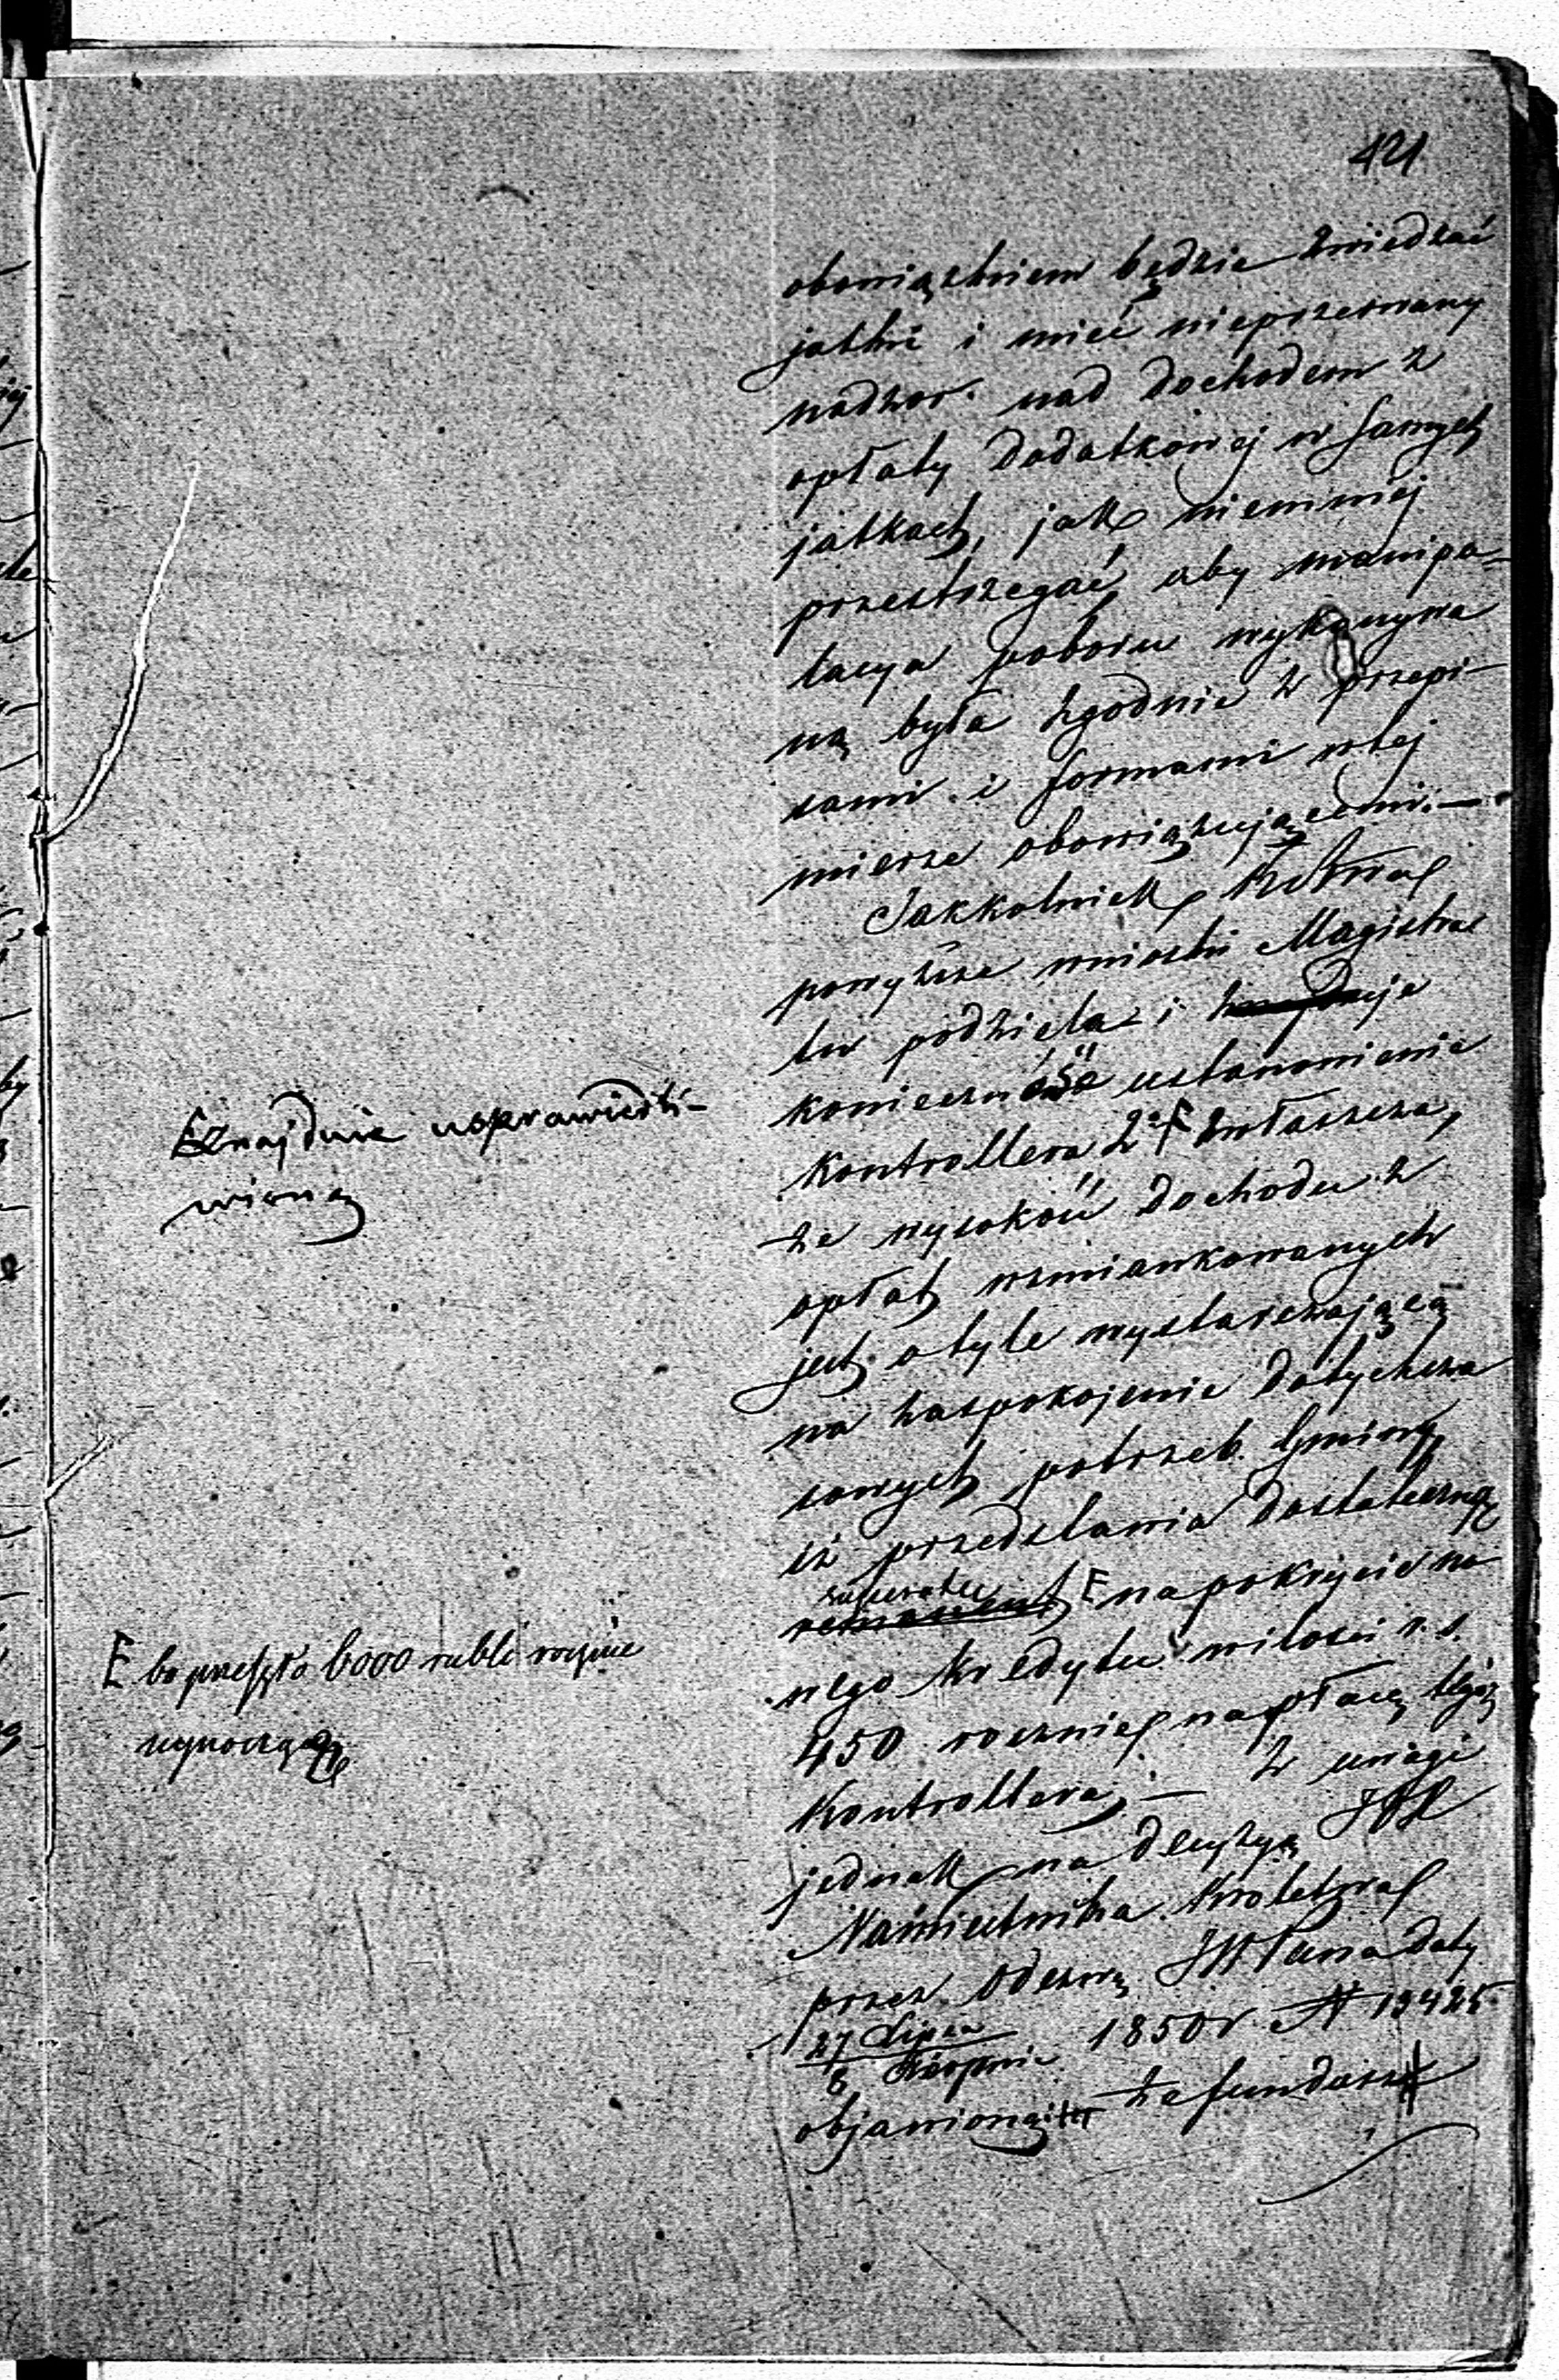 421
obowiązkiem będzie zwiedzać
jatki i mieć nieprzerwany
nadzor nad dochodem z
opłaty dodatkowej w samych
jatkach, jak niemniej
przestrzegać aby manipu-
lacya poboru wykonywa
ną była zgodnie z przepi-
sami i formami w tej
mierze obowiązującemi. —
Jakkolwiek
powyższe wnioski Magistra
tu podziela i
konieczność ustanowienia
Kontrollera 2o zwłaszcza,
że wysokość dochodu z
opłat wzmiankowanych
jest o tyle wystarczającą
na zaspokojenie dotychcza
sowych potrzeb Gminy,
iż przedstawia dostateczną
remanent na pokrycie no
wego kredytu w ilości r. s.
450 rocznie na płacę tegoż
Kontrollera; — z uwagi
jednak na decyzyą JO
Namiestnika Królestwa
przez Odezwę JW Pana daty
27 Lipca
8 Sierpnia 1850 r. N 19425
objawioną że fundusz
znajduje usprawiedli-
wioną
E bo przeszło 6000 rubli
wynoszącą